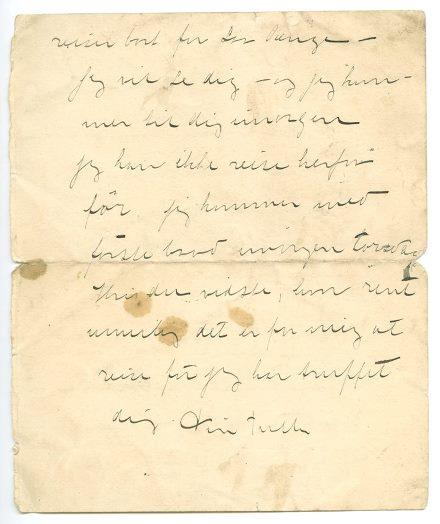 reiser bort for Les Penge –
jeg vil se dig – og jeg kom-
mer til dig imorgen
jeg kan ikke reise herfra
før. jeg kommer med
første baad imorgen torsdag
Hvis du vidste, hvor rent
umulig det er for mig at
reise før jeg har truffet
dig